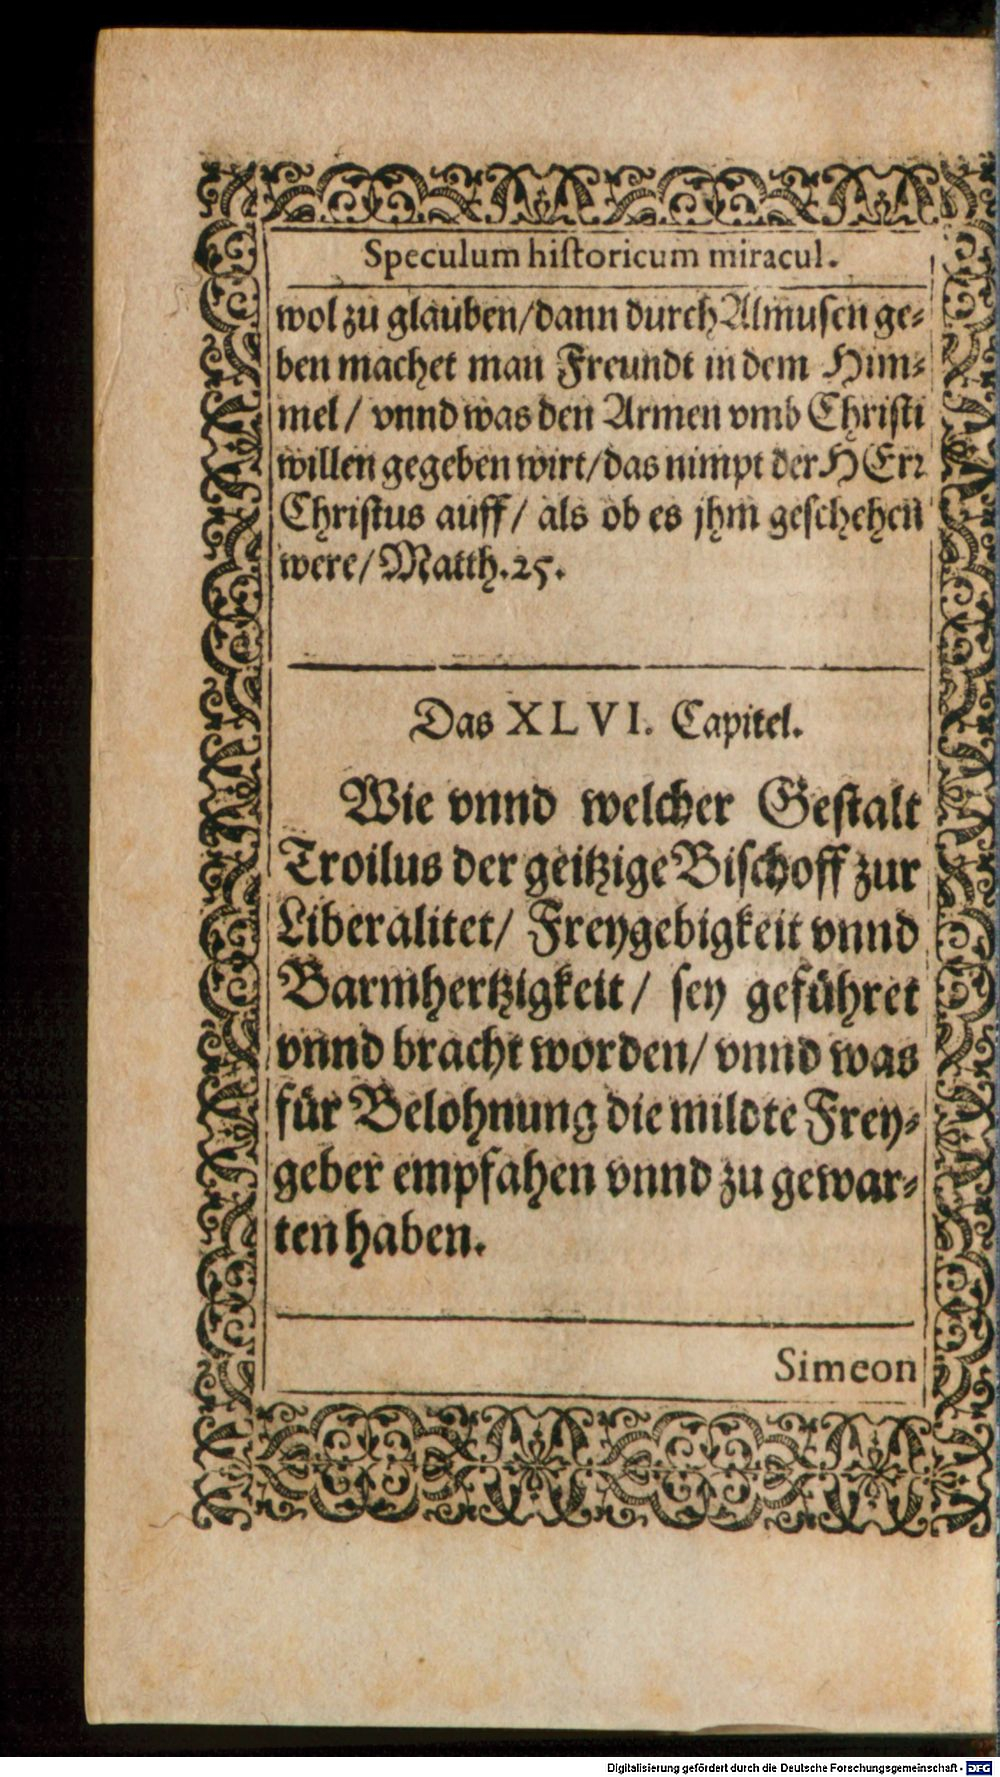 Speculum historicum miracul.
wol zu glauben/dann durch Almusen ge-
ben machet man Freundt in dem Him-
mel/ vnnd was den Armen vmb Christi
willen gegeben wirt/das nimpt der HErr
Christus auff/ als ob es jhm geschehen
were/Matth.25.
Das XLVI. Capitel.
Wie vnnd welcher Gestalt
Troilus der geitzige Bischoff zur
Liberalitet/ Freygebigkeit vnnd
Barmhertzigkeit/ sey geführet
vnnd bracht worden/ vnnd was
für Belohnung die mildte Frey-
geber empfahen vnnd zu gewar-
ten haben.
Simeon
Digitalisierung gefördert durch die Deutsche Forschungsgemeinschaft - DFG